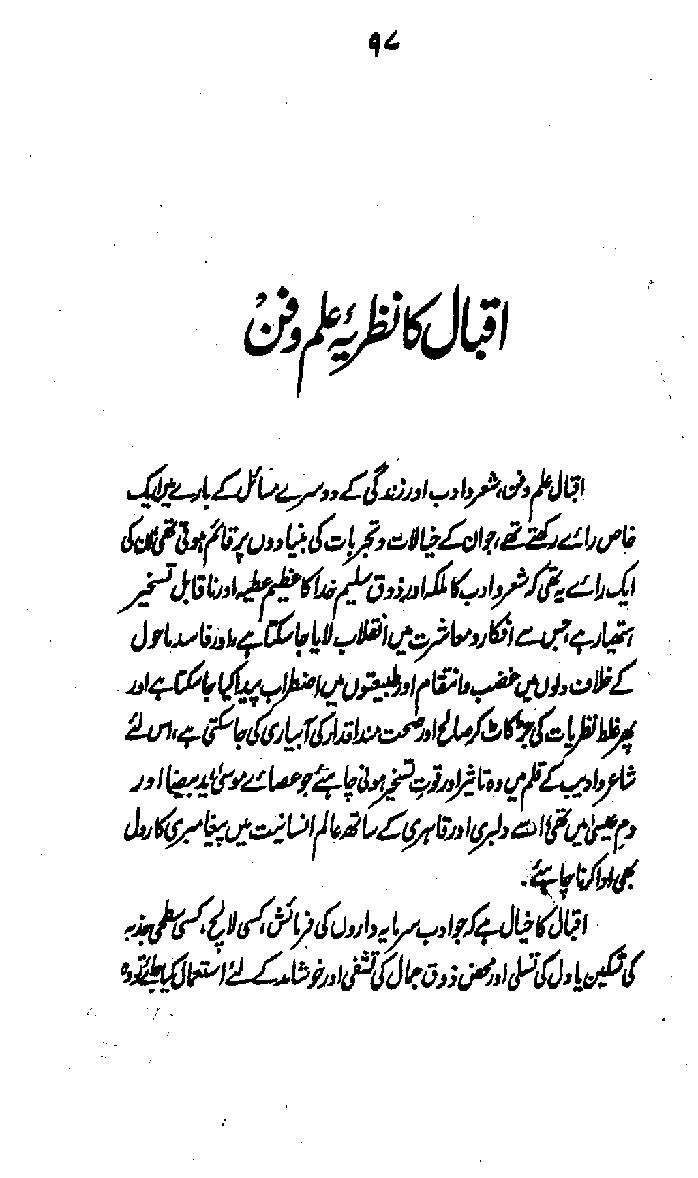 ۹۷
اقبال کا نظریۂ علم و فن
اقبال علم و فن، شعر و ادب اور زندگی کے دوسرے مسائل کے بارے میں ایک
خاص رائے رکھتے تھے، جو ان کے خیالات و تجربات کی بنیادوں پر قائم ہوتی تھی، ان کی
ایک رائے یہ تھی کہ شعر و ادب کا ملکہ اور ذوق سلیم خدا کا عظیم عطیہ اور ناقابل تسخیر
ہتھیار ہے، جس سے افکار و معاشرت میں انقلاب لایا جا سکتا ہے، اور فاسد ماحول
کے خلاف دلوں میں غضب و انتقام اور طبیعتوں میں اضطراب پیدا کیا جا سکتا ہے اور
پھر غلط نظریات کی جڑ کاٹ کر صالح اور صحت مند اقدار کی آبیاری کی جا سکتی ہے، اس لئے
شاعر و ادیب کے قلم میں وہ تاثیر اور قوتِ تسخیر ہونی چاہئے جو عصائے موسیٰ ید بیضا اور
دم عیسیٰ میں تھی اسے دلبری اور قاہری کے ساتھ عالم انسانیت میں پیغامبری کا رول
بھی ادا کرنا چاہئے۔
اقبال کا خیال ہے کہ جو ادب سرمایہ داروں کی فرمائش، کسی لالچ، کسی سطحی جذبہ
کی تسکین یا دل کی تسلی اور محض ذوق جمال کی تشفی اور خوشامد کے لئے استعمال کیا جائے تو وہ